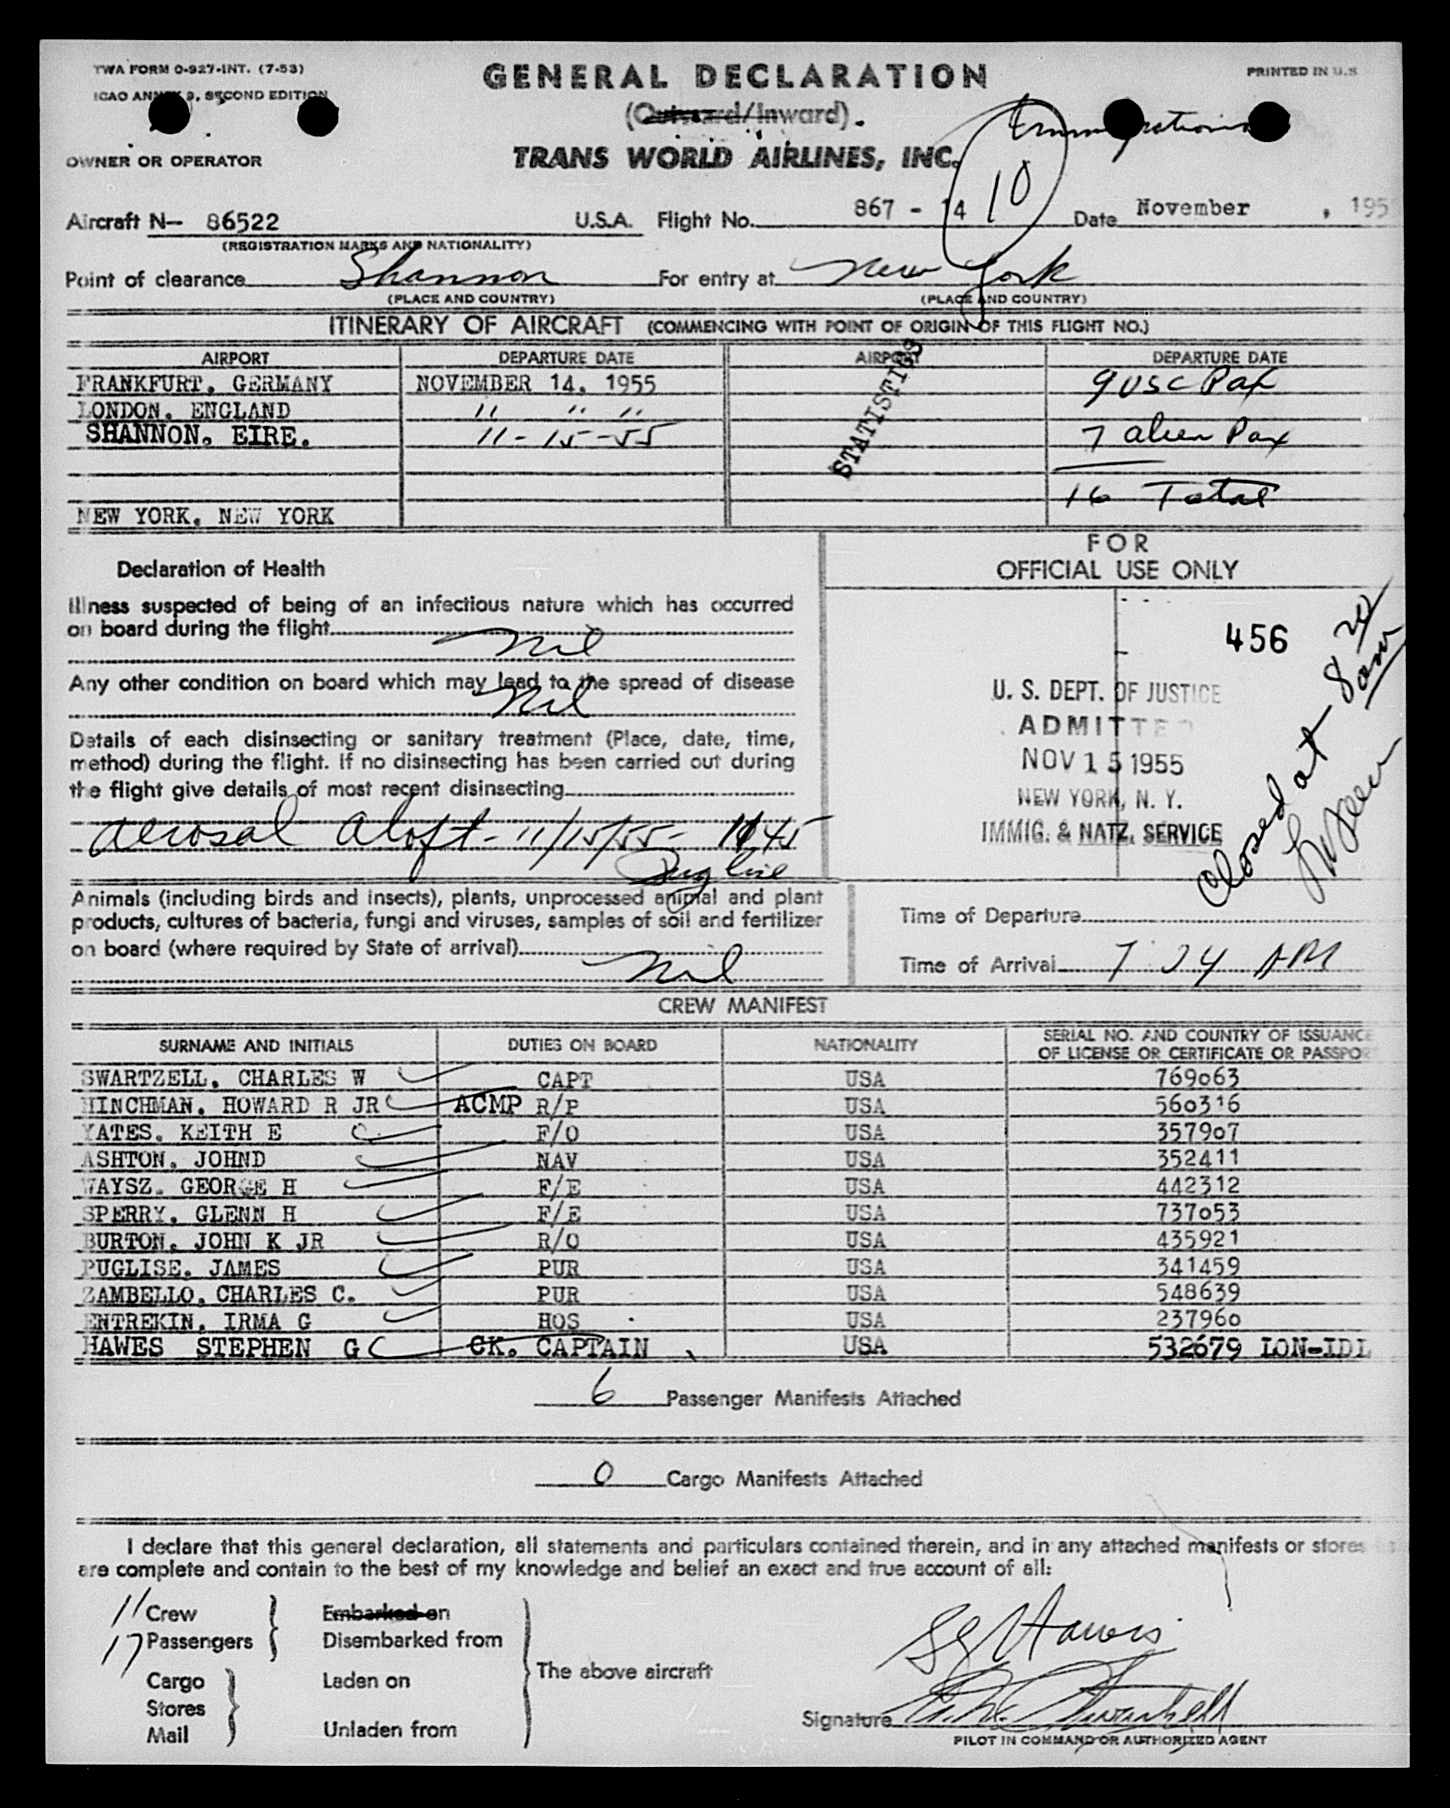 TWA FORM O-927-INT. (7-53)
GENERAL DECLARATION
PRINTED IN U.S
ICAO ANNEX 9, SECOND EDITION
(Outward/Inward).
Immigration
OWNER OR OPERATOR
TRANS WORLD AIRLINES, INC.
10
Aircraft N— 86522 U.S.A. Flight No. 867 - 14 Date November , 195
(REGISTRATION MARKS AND NATIONALITY)
Point of clearance Shannon For entry at New York
(PLACE AND COUNTRY) (PLACE AND COUNTRY)
ITINERARY OF AIRCRAFT (COMMENCING WITH POINT OF ORIGIN OF THIS FLIGHT NO.)
AIRPORT DEPARTURE DATE AIRPORT DEPARTURE DATE
FRANKFURT, GERMANY NOVEMBER 14, 1955 9 USC Pax
LONDON, ENGLAND " " "
SHANNON, EIRE. 11-15-55 7 alien Pax
STATISTICS
16 Total
NEW YORK, NEW YORK
FOR
OFFICIAL USE ONLY
Declaration of Health
Illness suspected of being of an infectious nature which has occurred
on board during the flight
Nil
Any other condition on board which may lead to the spread of disease
Nil
Details of each disinsecting or sanitary treatment (Place, date, time,
method) during the flight. If no disinsecting has been carried out during
the flight give details of most recent disinsecting
Aerosal Aloft - 11/15/55 - 1145
Puglise
456
U. S. DEPT. OF JUSTICE
ADMITTED
NOV 15 1955
NEW YORK, N. Y.
IMMIG. & NATZ. SERVICE
Closed at 8 20 am
Animals (including birds and insects), plants, unprocessed animal and plant
products, cultures of bacteria, fungi and viruses, samples of soil and fertilizer
on board (where required by State of arrival) Nil
Time of Departure
Time of Arrival 7:24 AM
CREW MANIFEST
SURNAME AND INITIALS DUTIES ON BOARD NATIONALITY SERIAL NO. AND COUNTRY OF ISSUANCE
OF LICENSE OR CERTIFICATE OR PASSPOR
SWARTZELL, CHARLES W CAPT USA 769063
HINCHMAN, HOWARD R JR ACMP R/P USA 560316
YATES, KEITH E F/O USA 357907
ASHTON, JOHND NAV USA 352411
WAYSZ, GEORGE H F/E USA 442312
SPERRY, GLENN H F/E USA 737053
BURTON, JOHN K JR R/O USA 435921
PUGLISE, JAMES PUR USA 341459
ZAMBELLO, CHARLES C. PUR USA 548639
ENTREKIN, IRMA G HOS USA 237960
HAWES STEPHEN G CK. CAPTAIN USA 532679 LON-IDL
6 Passenger Manifests Attached
0 Cargo Manifests Attached
I declare that this general declaration, all statements and particulars contained therein, and in any attached manifests or stores
are complete and contain to the best of my knowledge and belief an exact and true account of all:
11 Crew Embarked on
17 Passengers Disembarked from
The above aircraft
Cargo Laden on
Stores
Mail Unladen from
SG Hawes
Signature C. W. Swartzell
PILOT IN COMMAND OR AUTHORIZED AGENT